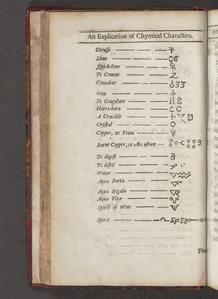 An Explication of Chymical Characters.
Ceruss
Lime
Quick-lime
To Cement
Cinnabar
Wax
To Coagulate
Harts-horn
A Crucible
Crystal
Copper, or Venus
Burnt Copper, or Æs ustum
To digest
To distil
Water
Aqua Fortis
Aqua Regalis
Aqua Vitæ
Spirit of Wine
Spirit